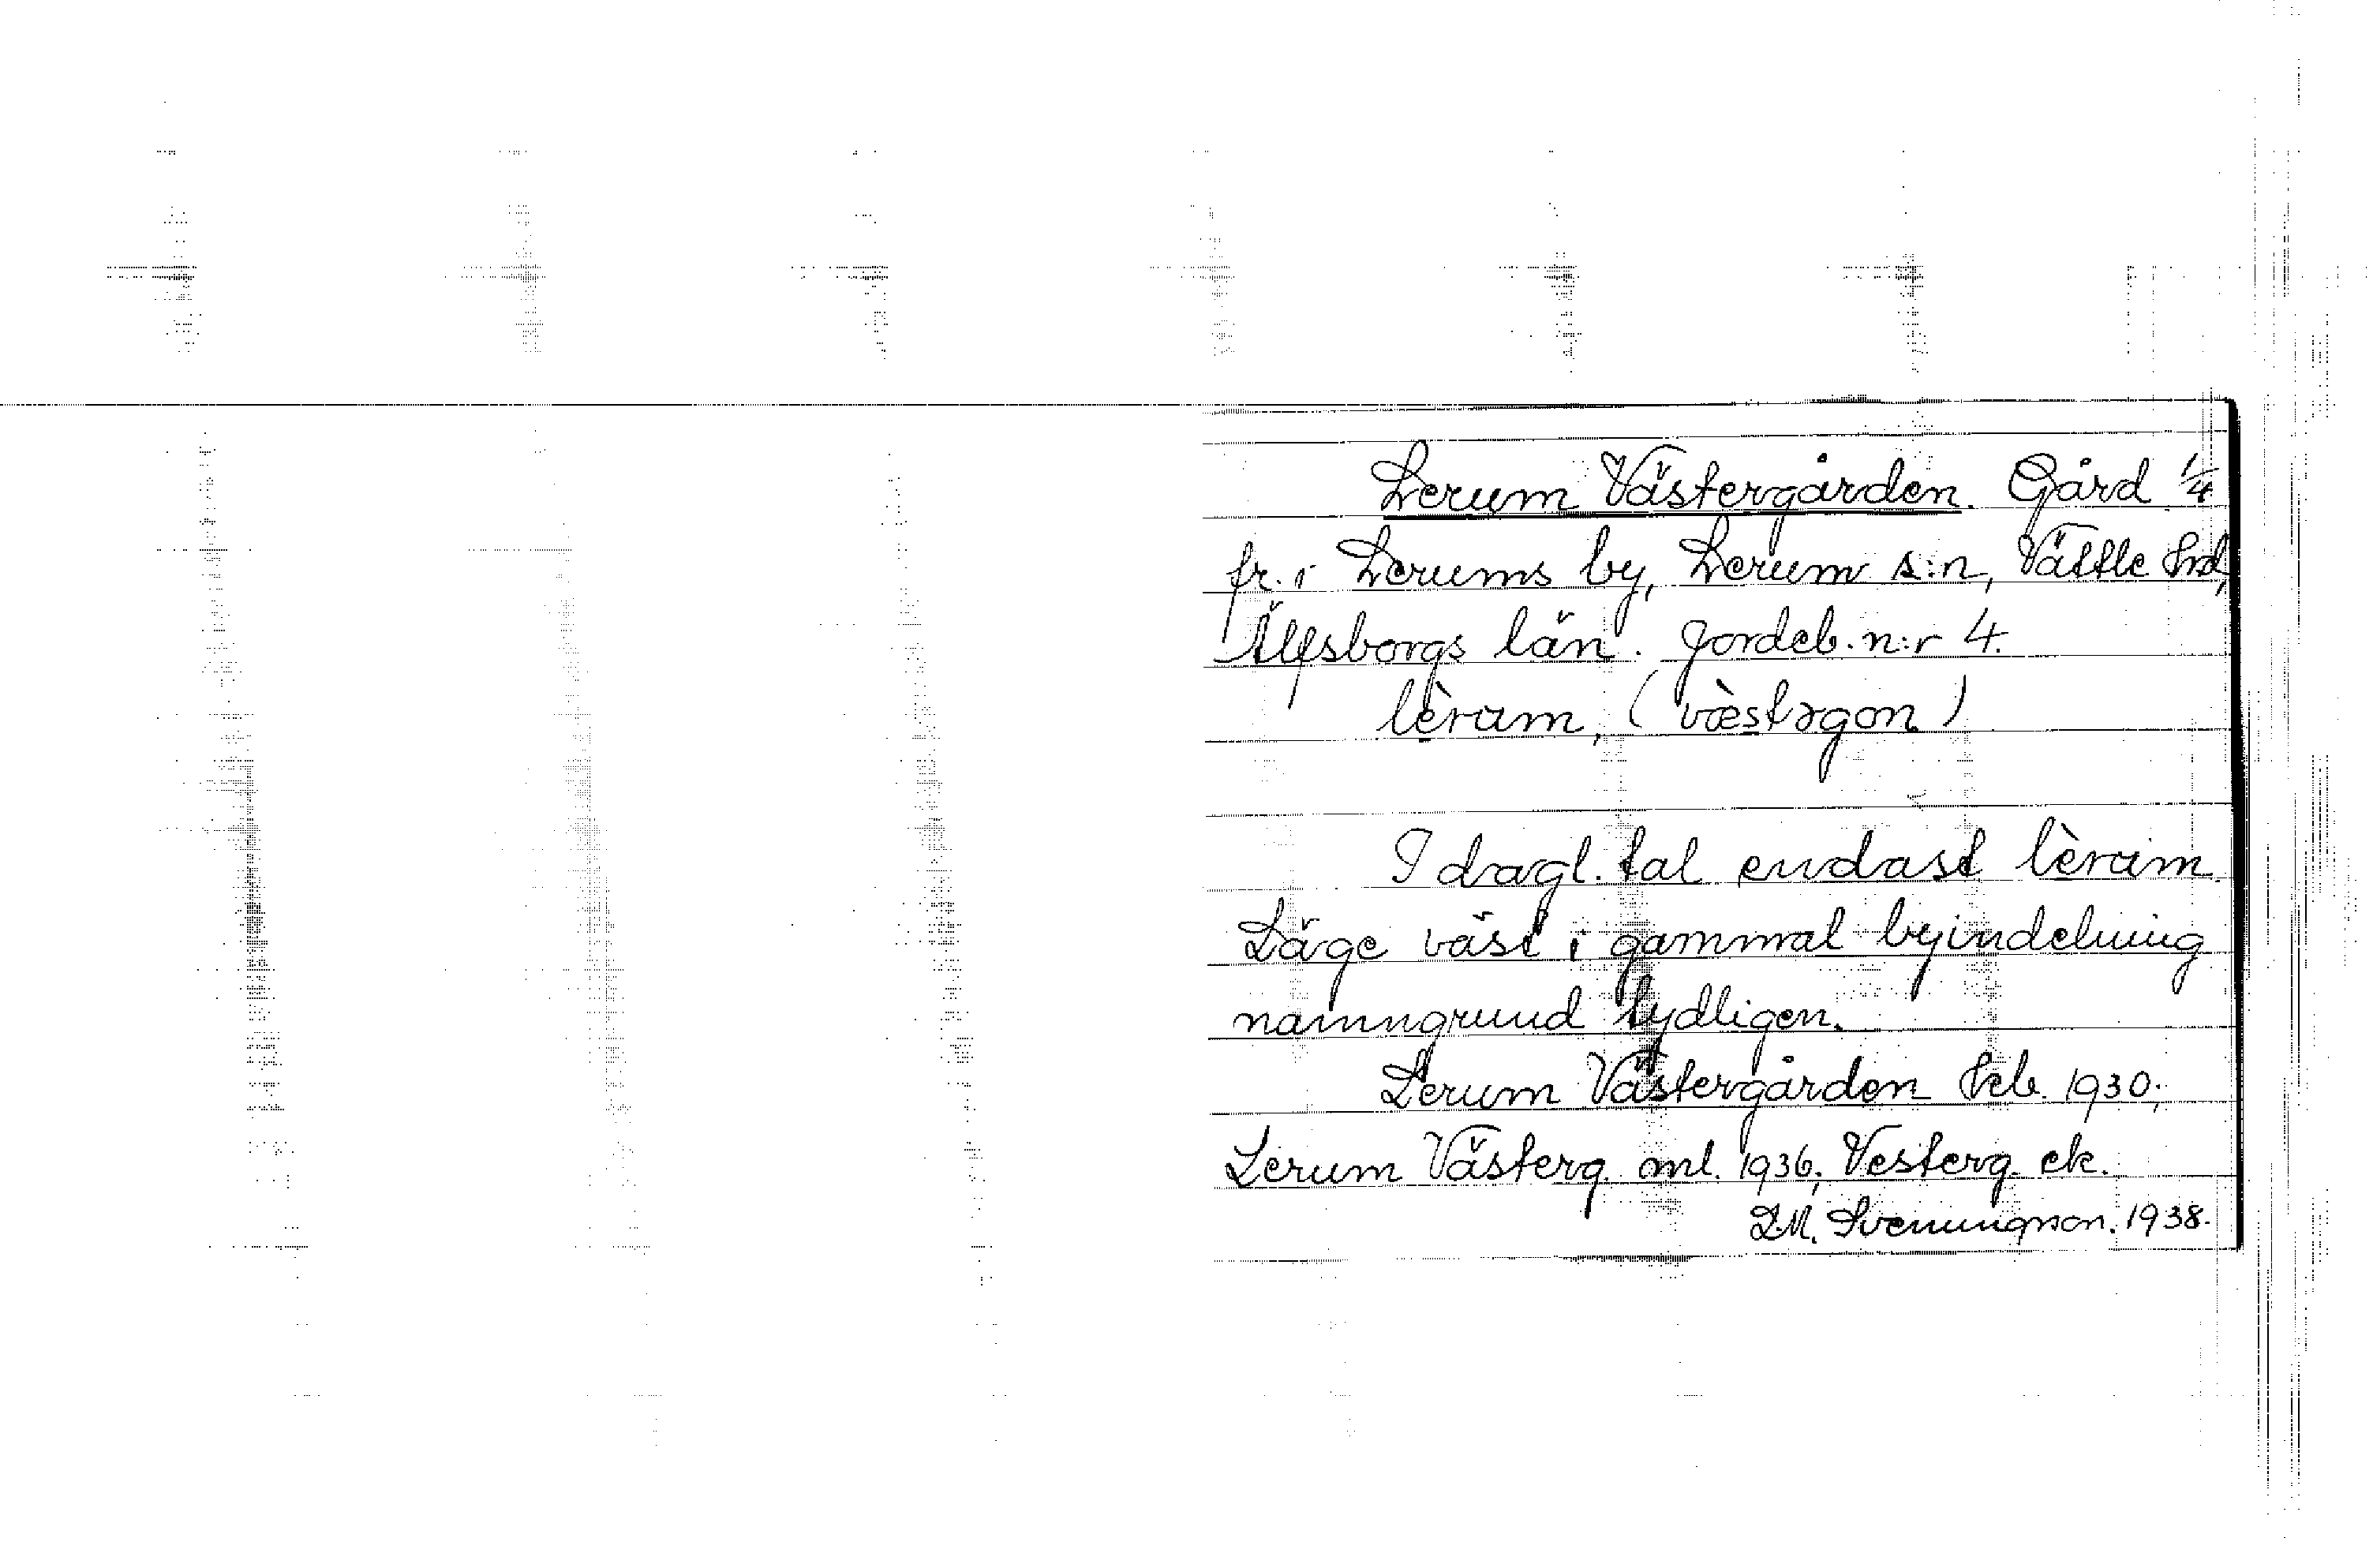 Lerum Västergården. Gård 1/4
fr. i Lerums by, Lerum s:n, Vättle hd,
Älfsborgs län. Jordeb. n:r 4.
lèram, (vèstərgon)
I dagl. tal endast lèram.
Läge väst i gammal byindelning
namngrund tydligen.
Lerum Västergården Skb. 1930;
Lerum Västerg. oml. 1936; Vesterg. ek.
Svenungson. 1938.